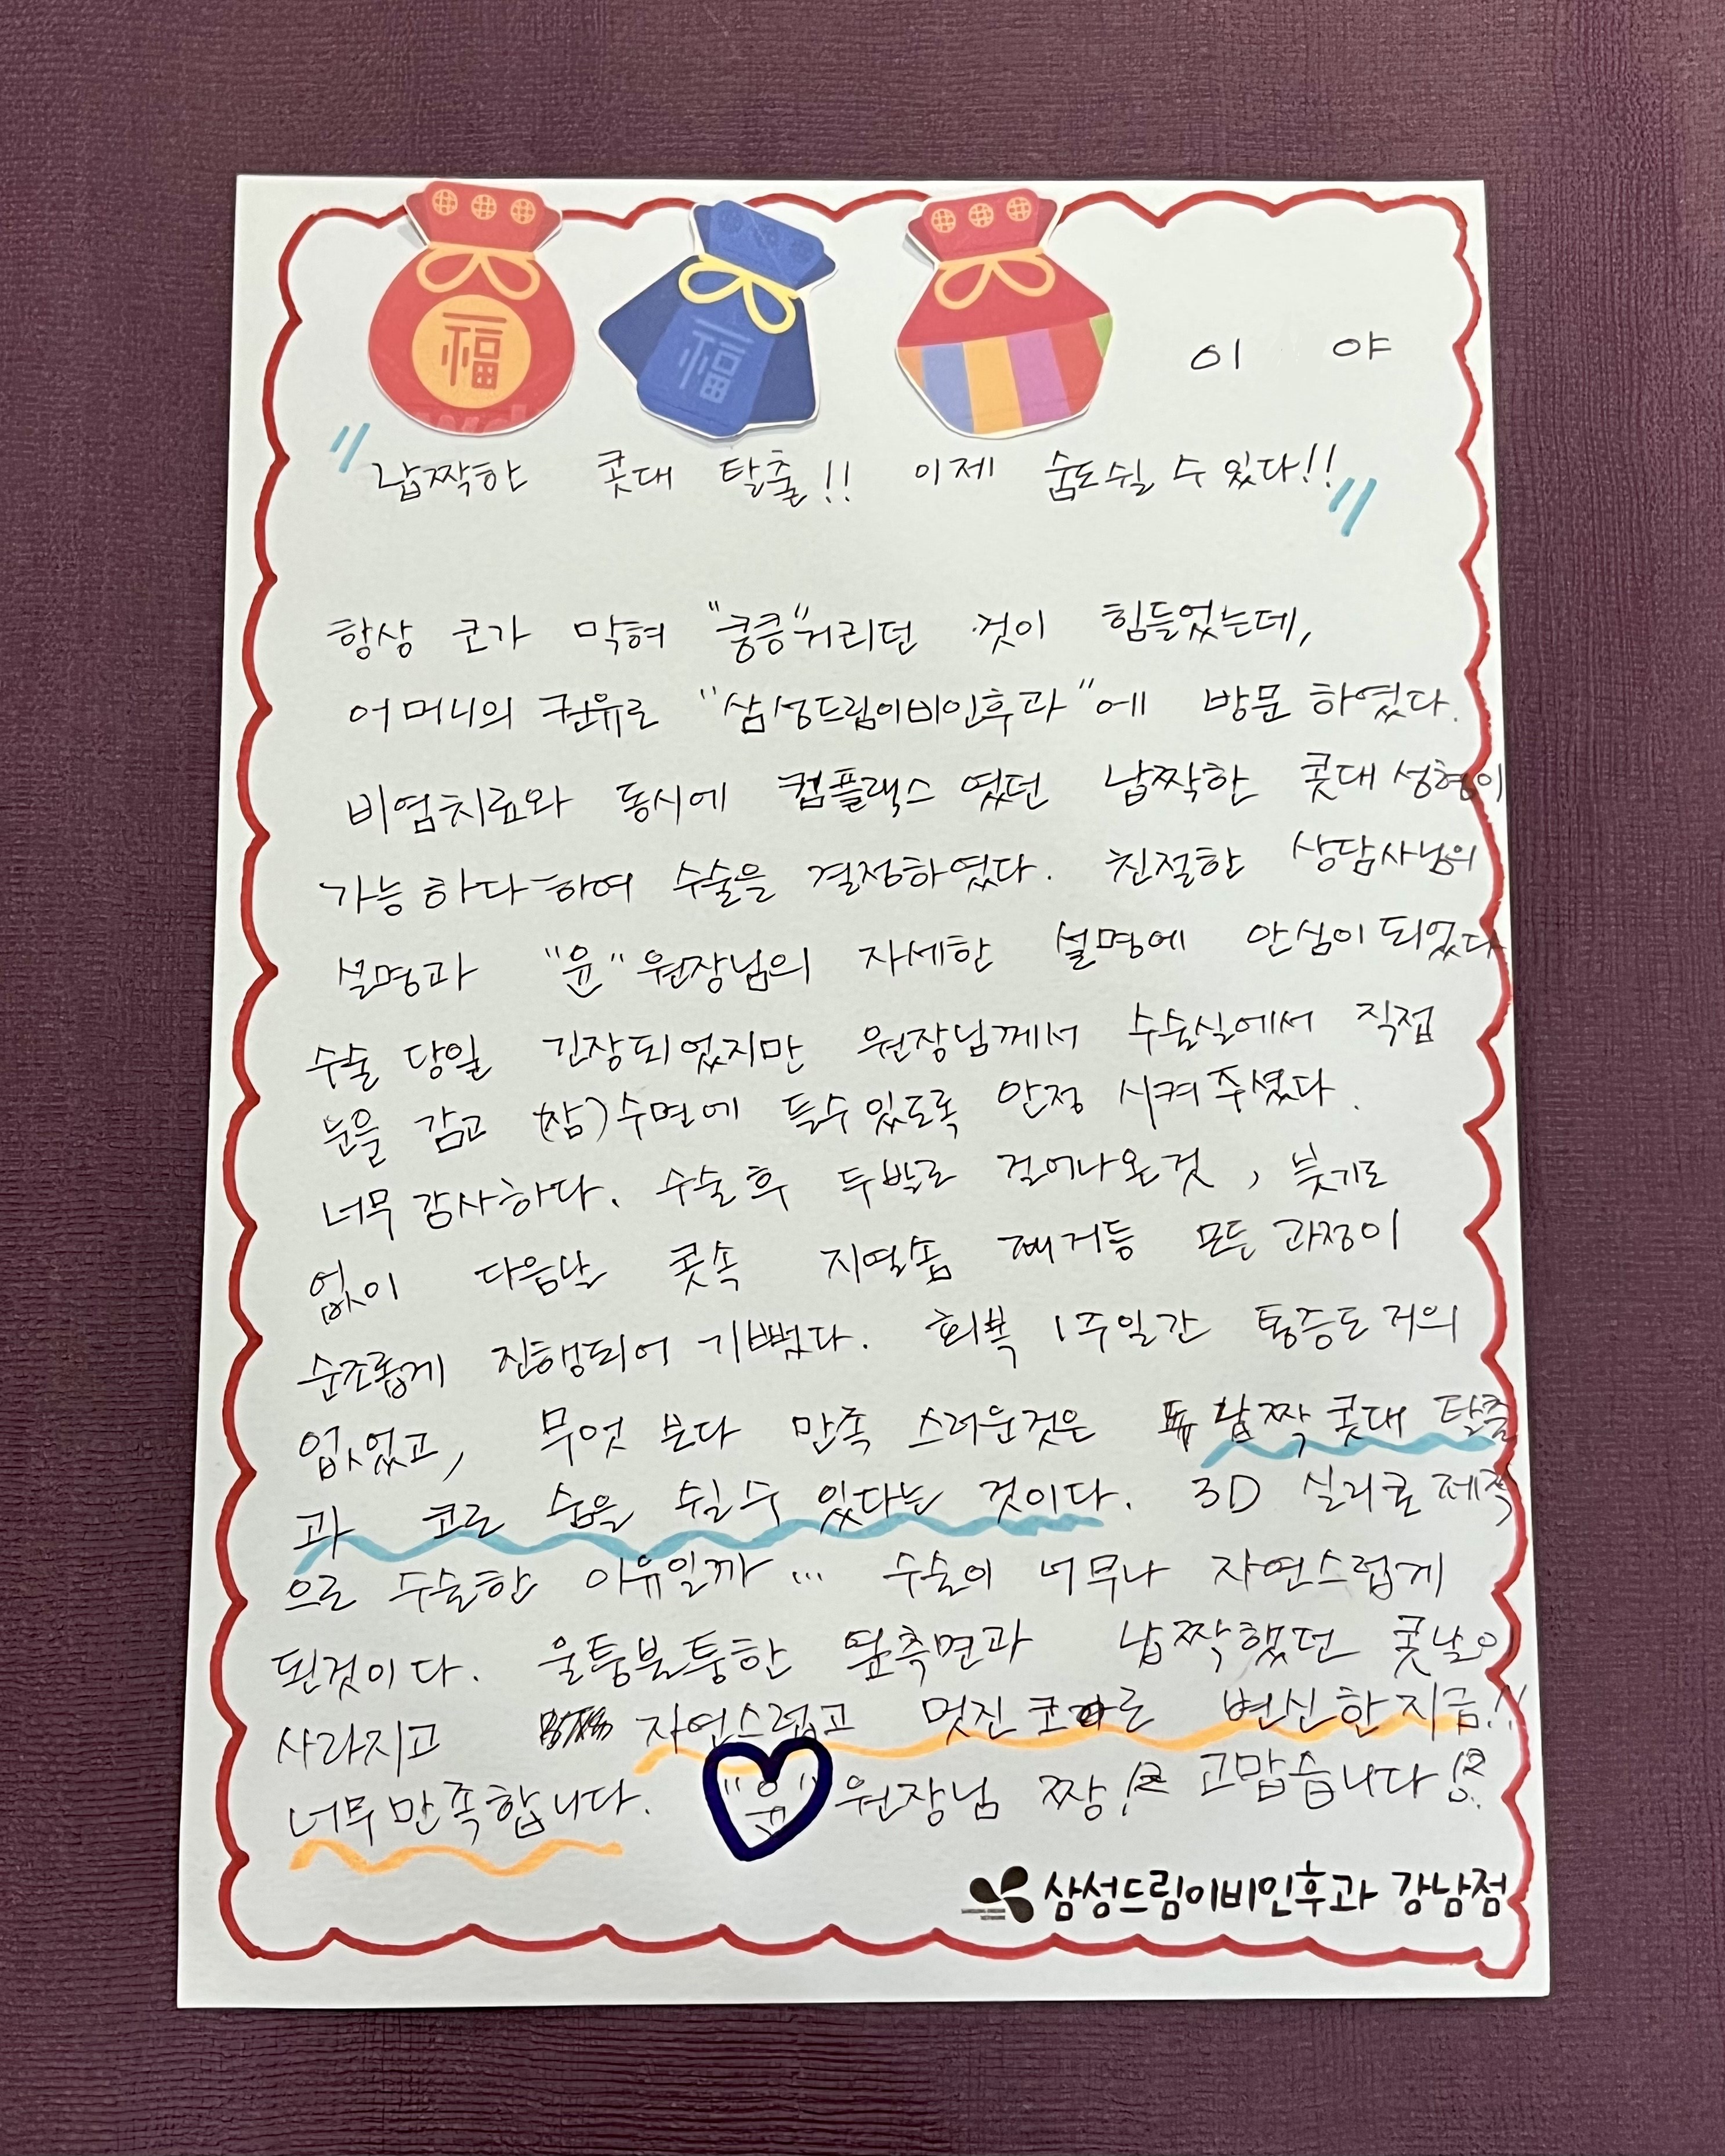 福 福
이 야
"납짝한 콧대 탈출!! 이제 숨도쉴 수 있다!!"
항상 코가 막혀 "킁킁"거리던 것이 힘들었는데,
어머니의 권유로 "삼성드림이비인후과"에 방문 하였다.
비염치료와 동시에 컴플랙스 였던 납짝한 콧대 성형이
가능 하다 하여 수술을 결정하였다. 친절한 상담사님의
설명과 "윤" 원장님의 자세한 설명에 안심이 되었다
수술 당일 긴장되었지만 원장님께서 수술실에서 직접
눈을 감고 (잠)수면에 들수있도록 안정 시켜 주셨다.
너무 감사하다. 수술 후 두발로 걸어나온것, 붓기도
없이 다음날 콧속 지혈솜 제거등 모든 과정이
순조롭게 진행되어 기뻤다. 회복 1주일간 통증도 거의
없었고, 무엇 보다 만족 스러운것은 납짝 콧대 탈출
과 코로 숨을 쉴수 있다는 것이다. 3D 실리콘 제작
으로 수술한 이유일까... 수술이 너무나 자연스럽게
된것이다. 울퉁불퉁한 옆측면과 납짝했던 콧날이
사라지고 자연스럽고 멋진 코로 변신한 지금!!
너무 만족합니다. "윤" 원장님 짱! 고맙습니다!
삼성드림이비인후과 강남점